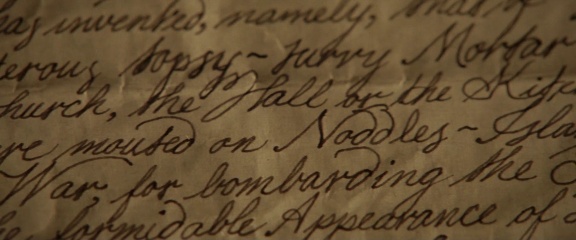 has invented, namely, that of
terous topsy-turvy Mortar
hurch, the Hall or the Kitc
re mouted on Noddles-Isla
War, for bombarding the
he formidable Appearance of